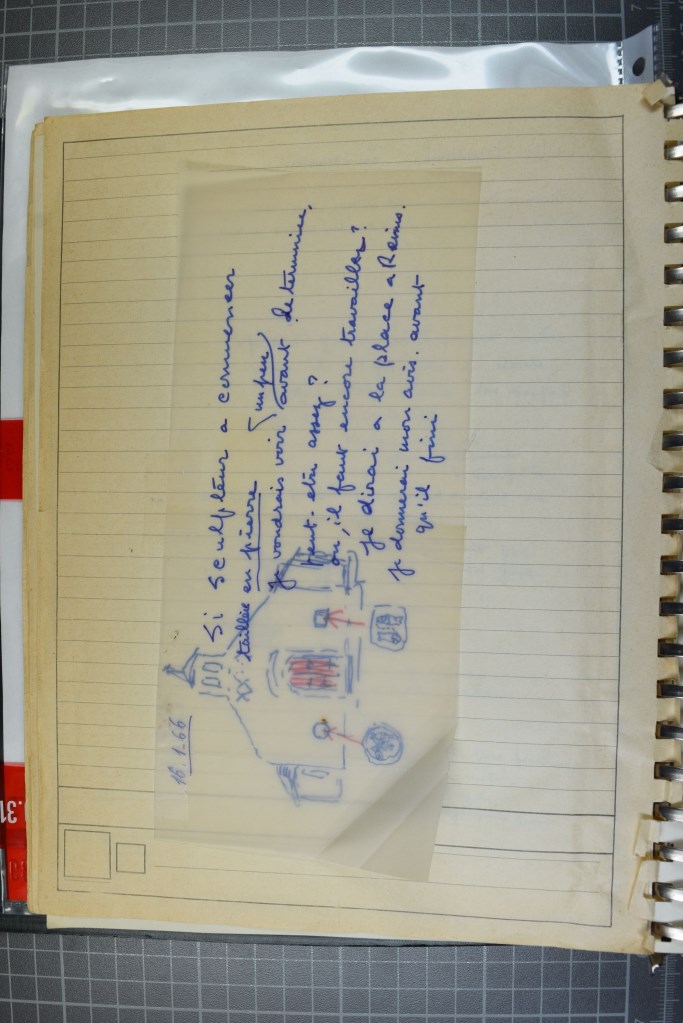 16.1.66
Si sculpteur a commencer
taillée en pierre
je voudrais voir un peu avant determiné,
peut-etre assez?
ou, il faut encore travailler?
je dirai a la place a Reims.
je donnerai mon avis. avant
qu'il fini
.31